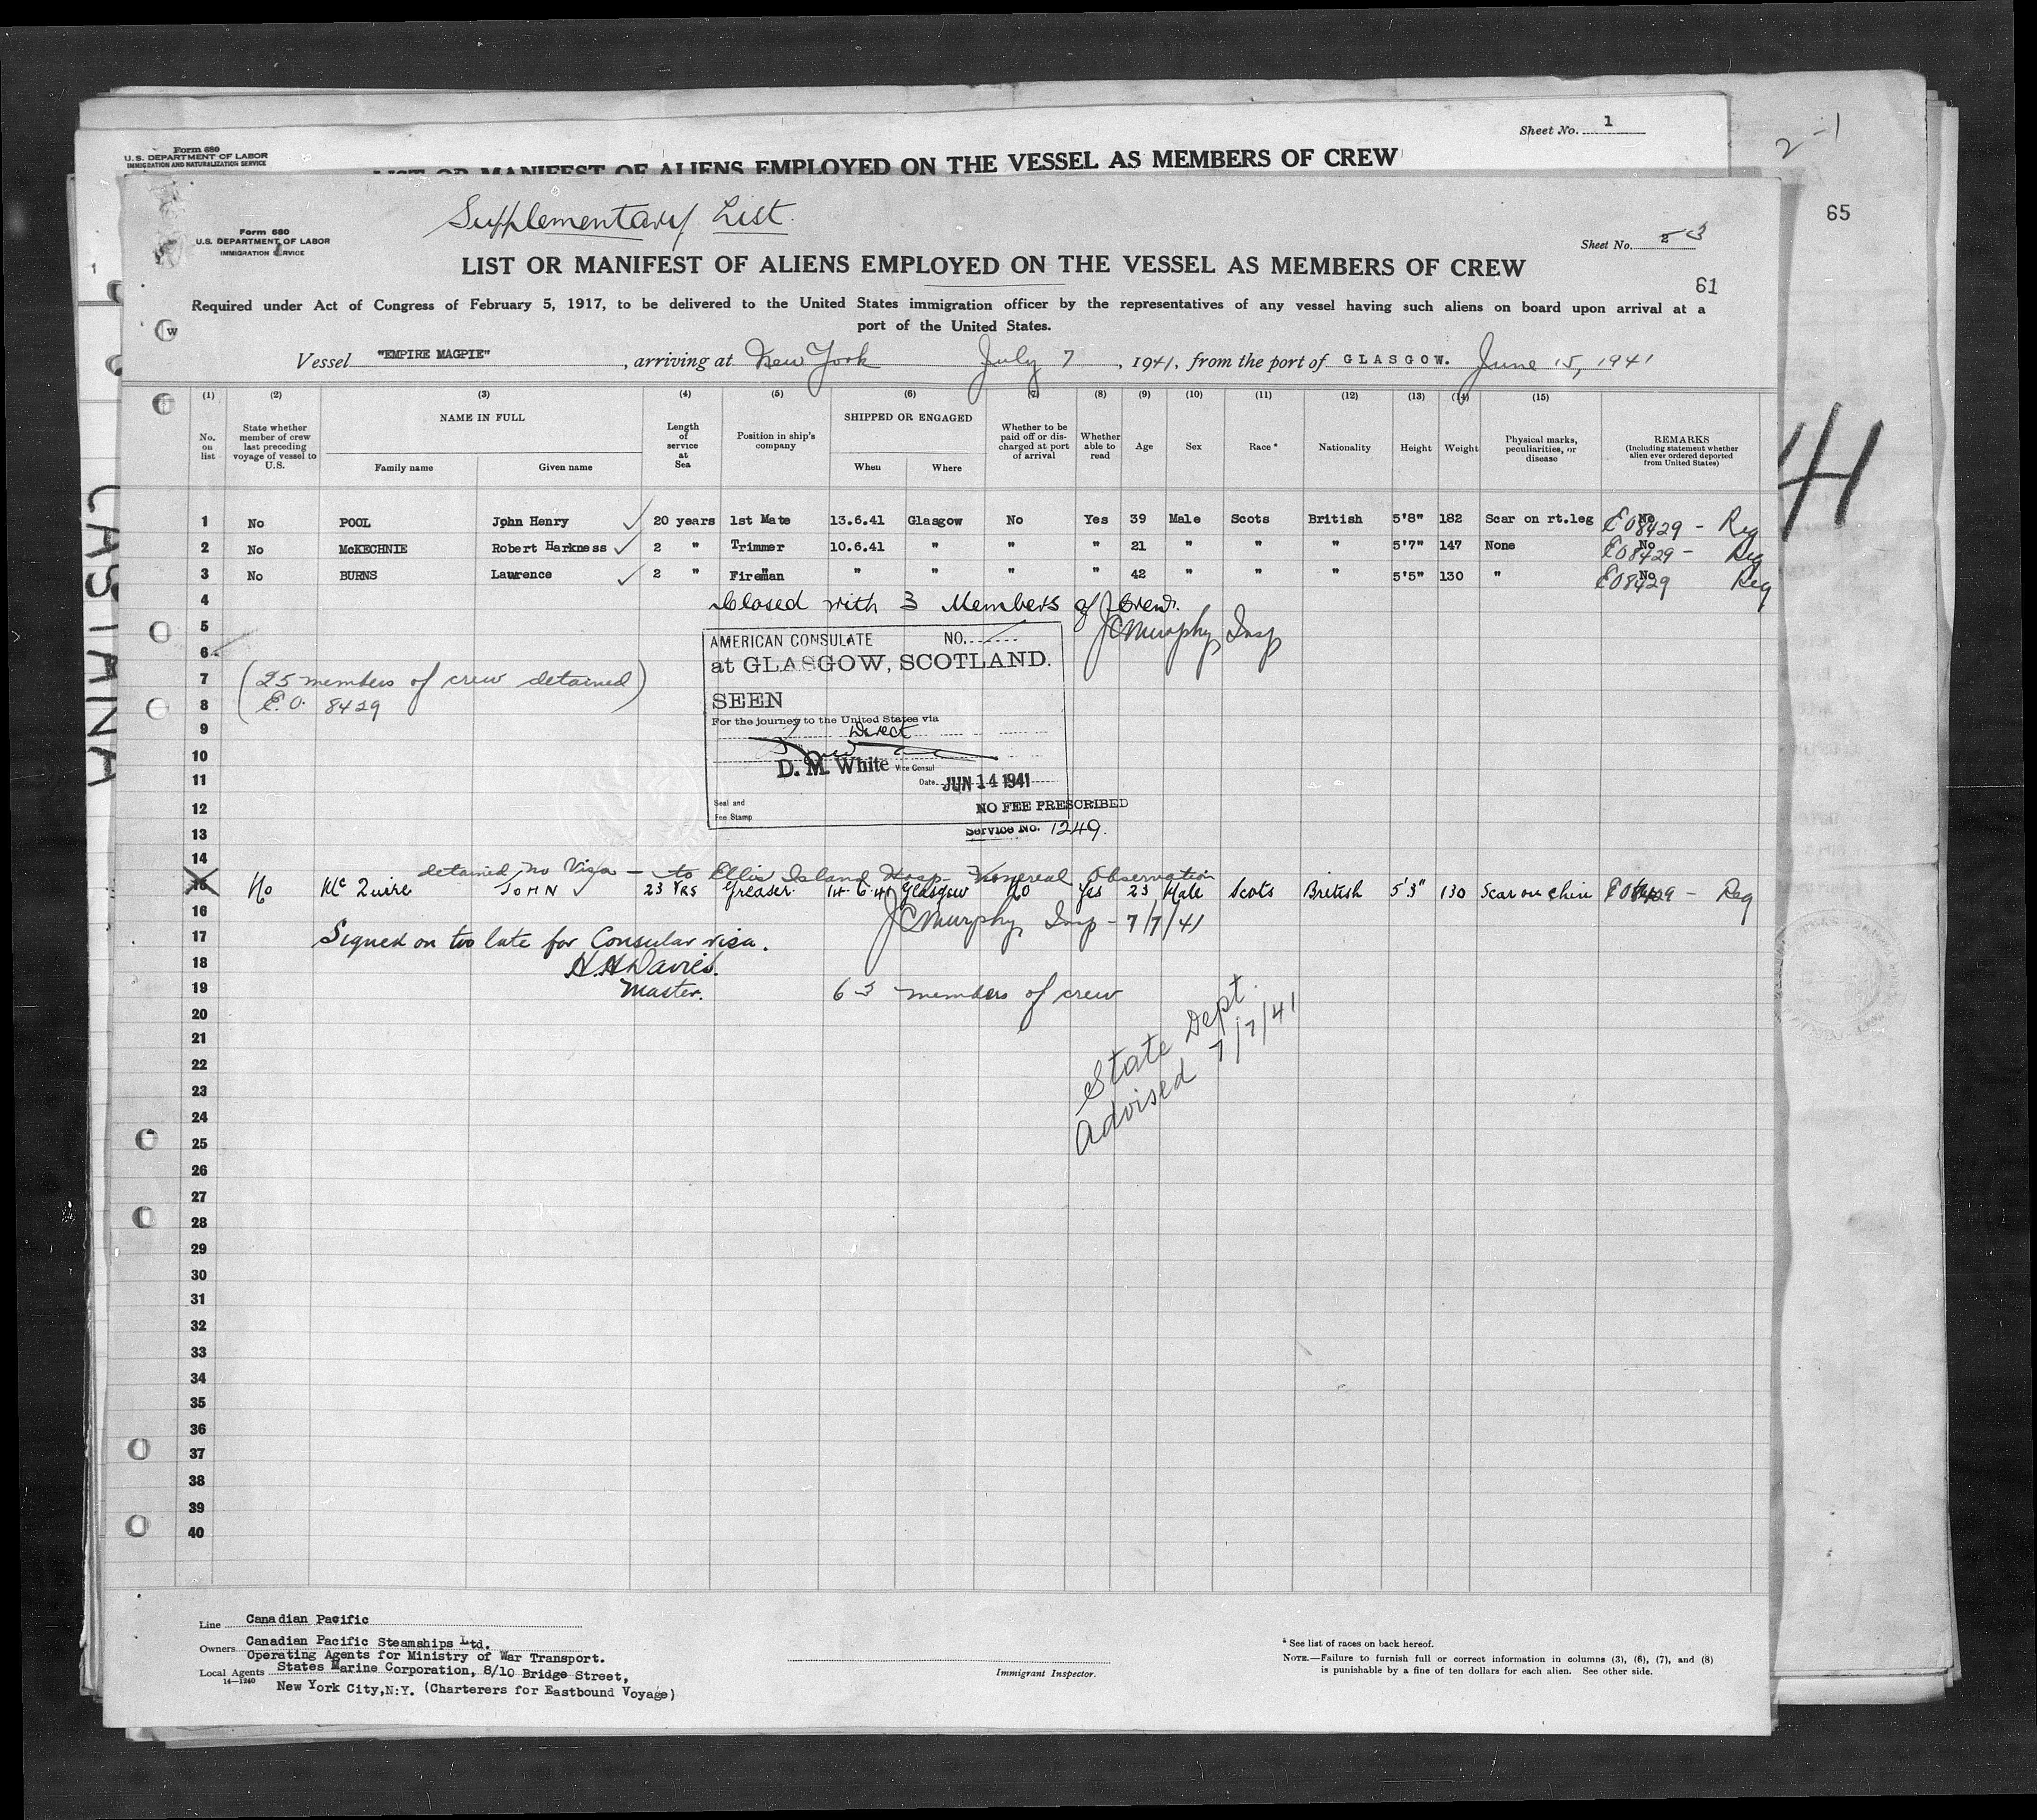 Sheet No. 1
Form 680
U.S. DEPARTMENT OF LABOR
IMMIGRATION AND NATURALIZATION SERVICE
LIST OR MANIFEST OF ALIENS EMPLOYED ON THE VESSEL AS MEMBERS OF CREW
2-1
65
Supplementary List.
Form 680
U.S. DEPARTMENT OF LABOR
IMMIGRATION SERVICE
Sheet No. 2 3
LIST OR MANIFEST OF ALIENS EMPLOYED ON THE VESSEL AS MEMBERS OF CREW
61
Required under Act of Congress of February 5, 1917, to be delivered to the United States immigration officer by the representatives of any vessel having such aliens on board upon arrival at a
port of the United States.
Vessel "EMPIRE MAGPIE", arriving at New York July 7, 1941, from the port of GLASGOW. June 15, 1941
(1) (2) (3) (4) (5) (6) (7) (8) (9) (10) (11) (12) (13) (14) (15)
No. on list
State whether member of crew last preceding voyage of vessel to U.S.
NAME IN FULL
Family name Given name
Length of service at Sea
Position in ship's company
SHIPPED OR ENGAGED
When Where
Whether to be paid off or discharged at port of arrival
Whether able to read
Age Sex Race * Nationality Height Weight
Physical marks, peculiarities, or disease
REMARKS
(Including statement whether alien ever ordered deported from United States)
1 No POOL John Henry 20 years 1st Mate 13.6.41 Glasgow No Yes 39 Male Scots British 5'8" 182 Scar on rt.leg No EO8429 - Reg
2 No McKECHNIE Robert Harkness 2 " Trimmer 10.6.41 " " " 21 " " " 5'7" 147 None No EO8429 - Reg
3 No BURNS Lawrence 2 " Fireman " " " " 42 " " " 5'5" 130 " No EO8429 Reg
4 Closed with 3 Members of Crew.
5 JCMurphy Insp
6
7 (25 members of crew detained)
8 E.O. 8429
9
10
11
12
13
14
AMERICAN CONSULATE NO.
at GLASGOW, SCOTLAND.
SEEN
For the journey to the United States via
Direct
D. M. White Vice Consul
Date JUN 14 1941
Seal and
Fee Stamp
NO FEE PRESCRIBED
Service No. 1249.
detained no Visa - to Ellis Island Hosp. Venereal Observation
15 No McQuire JOHN 23 YRS Greaser 14.6.41 Glasgow No Yes 23 Male Scots British 5'3" 130 Scar on chin No EO8429 - Reg
16 JCMurphy Insp - 7/7/41
17 Signed on too late for Consular visa.
18 H.H.Davies.
19 Master. 63 members of crew
20
21
22
23
24
25
State Dept.
Advised 7/7/41
26
27
28
29
30
31
32
33
34
35
36
37
38
39
40
Line Canadian Pacific
Owners Canadian Pacific Steamships Ltd.
Operating Agents for Ministry of War Transport.
Local Agents States Marine Corporation, 8/10 Bridge Street,
14—1240
New York City,N:Y. (Charterers for Eastbound Voyage)
Immigrant Inspector.
* See list of races on back hereof.
NOTE.—Failure to furnish full or correct information in columns (3), (6), (7), and (8)
is punishable by a fine of ten dollars for each alien. See other side.
CASTIANA
41